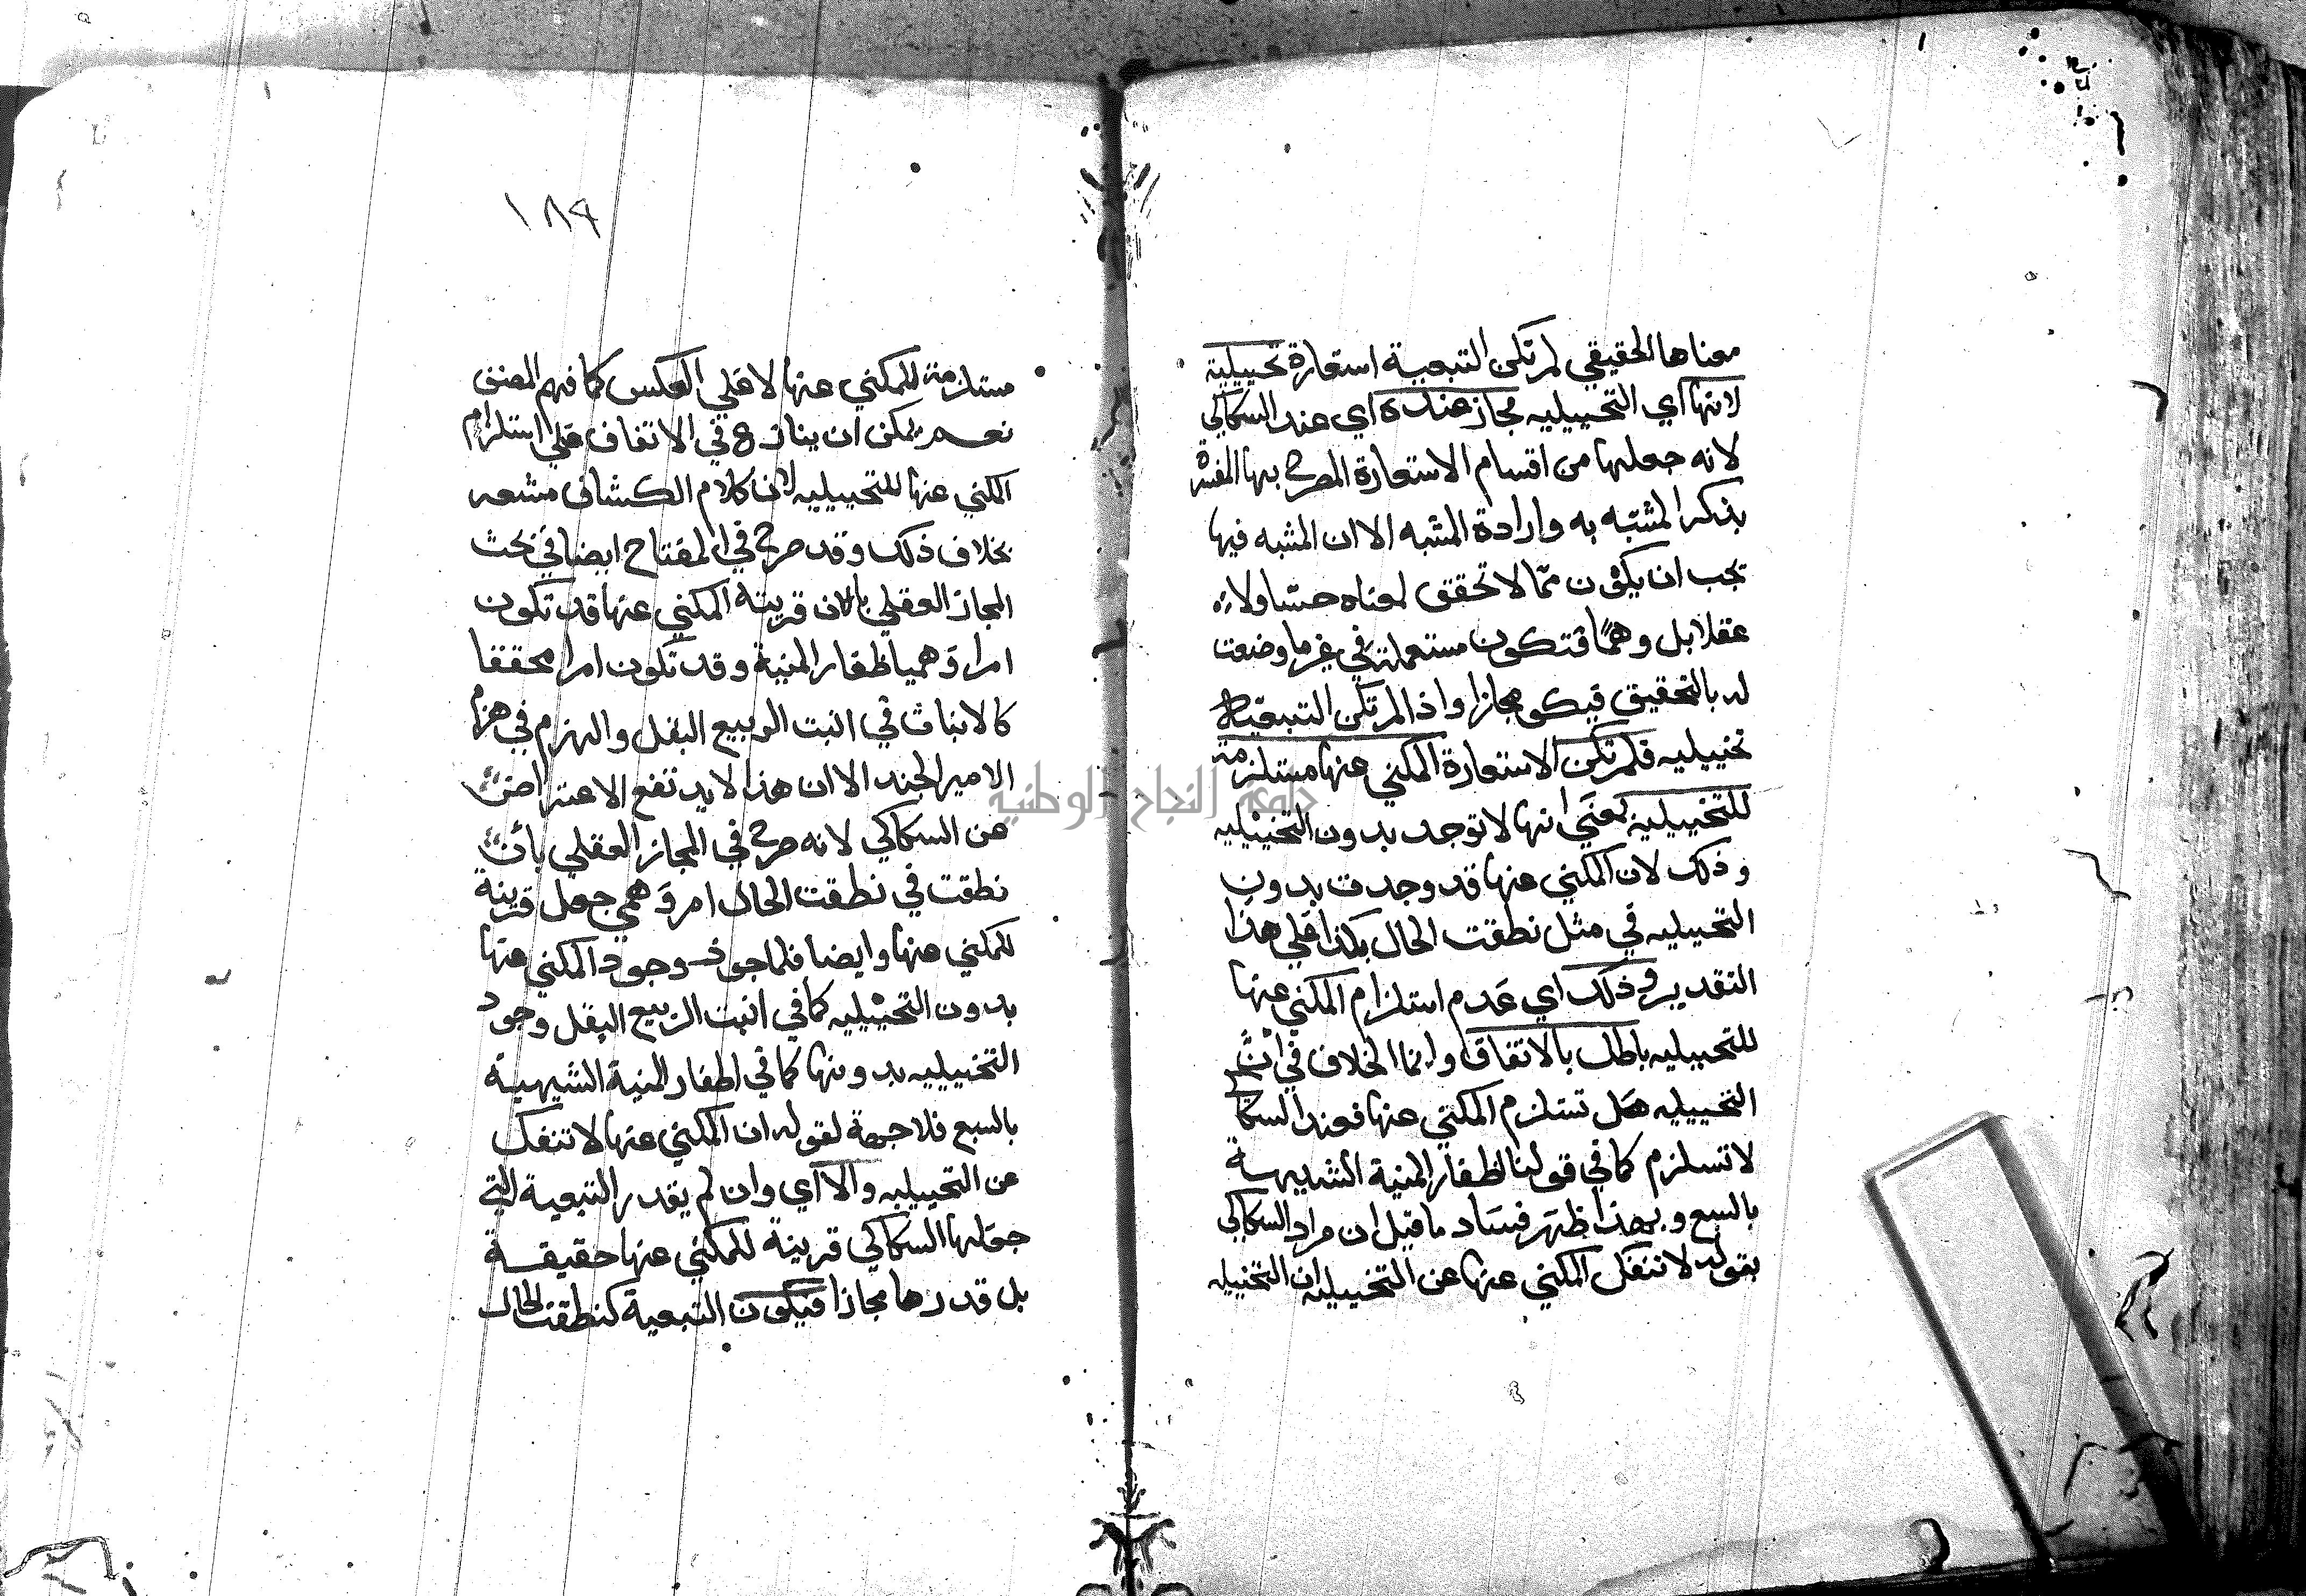 معناها الحقيقي لم تكن التبعية استعارة تخييلية
لانها اي التخييليه مجاز عنده اي عند السكاكي
لانه جعلها من اقسام الاستعارة المصرح بها المفسرة
بذكر المشبه به وارادة المشبه الا ان المشبه فيها
يجب ان يكون مما لا تحقق لمعناه حسا ولا
عقلا بل وهمًا فتكون مستعملة في غير ما وضعت
له بالتحقيق فيكو مجازا واذا لم تكن التبعية
تخييليه فلم تكن الاستعارة المكني عنها مستلزمة
للتخييلية بمعنى انها لا توجد بدون التخييليه
وذلك لان المكني عنها قد وجدت بدون
التخييليه في مثل نطقت الحال بكذا على هذا
التقدير وذلك اي عدم استلزام المكني عنها
للتخييليه باطل بالاتفاق وانما الخلاف في انّ
التخييليه هل تستلزم المكني عنها فعند السكاكي
لا تسلزم كما في قولنا اظفار المنية الشبيهة
بالسبع وبهذا ظهر فساد ما قيل ان مراد السكاكي
بقوله لا تنفك المكني عنها عن التخييليه ان التخييليه
١٨٩
مستلزمة للمكني عنها لا على العكس كما فهم المصنف
نعم يمكن ان ينازع في الاتفاق على استلزام
المكني عنها للتخييليه لان كلام الكشاف مشعر
بخلاف ذلك وقد صرح في المفتاح ايضا في بحث
المجاز العقلي بان قرينة المكني عنها قد تكون
امرا وهميا كاظفار المنية وقد تكون امرا محققا
كالانبات في انبت الربيع البقل والهزم في هزم
الامير الجند الا ان هذا لا يدفع الاعتراض
عن السكاكي لانه صرح في المجاز العقلي بان
نطقت في نطقت الحال امر وهمي جعل قرينة
للمكني عنها وايضا فلما جوز وجود المكني عنها
بدون التخييليه كما في انبت الربيع البقل وجود
التخييليه بدونها كما في اظفار المنية الشبيهة
بالسبع فلا جهة لقوله ان المكني عنها لا تنفك
عن التخييليه والا اي وان لم يقدر التبعية التي
جعلها السكاكي قرينة للمكني عنها حقيقة
بل قدرها مجازا فيكون التبعية كنطقت الحال
جامعة النجاح الوطنية